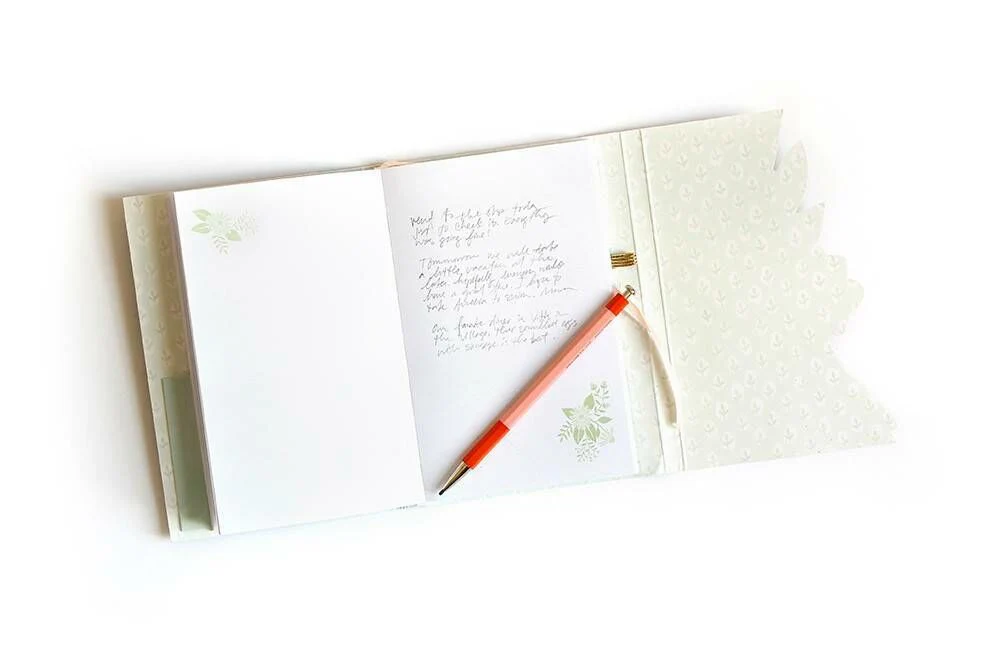 Went to the shop today
just to check in. Everything
was going fine!
Tomorrow we will take
a little vacation at the
lake. hopefully
have a good time. I hope to
take to swim.
Our favorite diner is
the village. Their scrambled eggs
with sausage is the best.